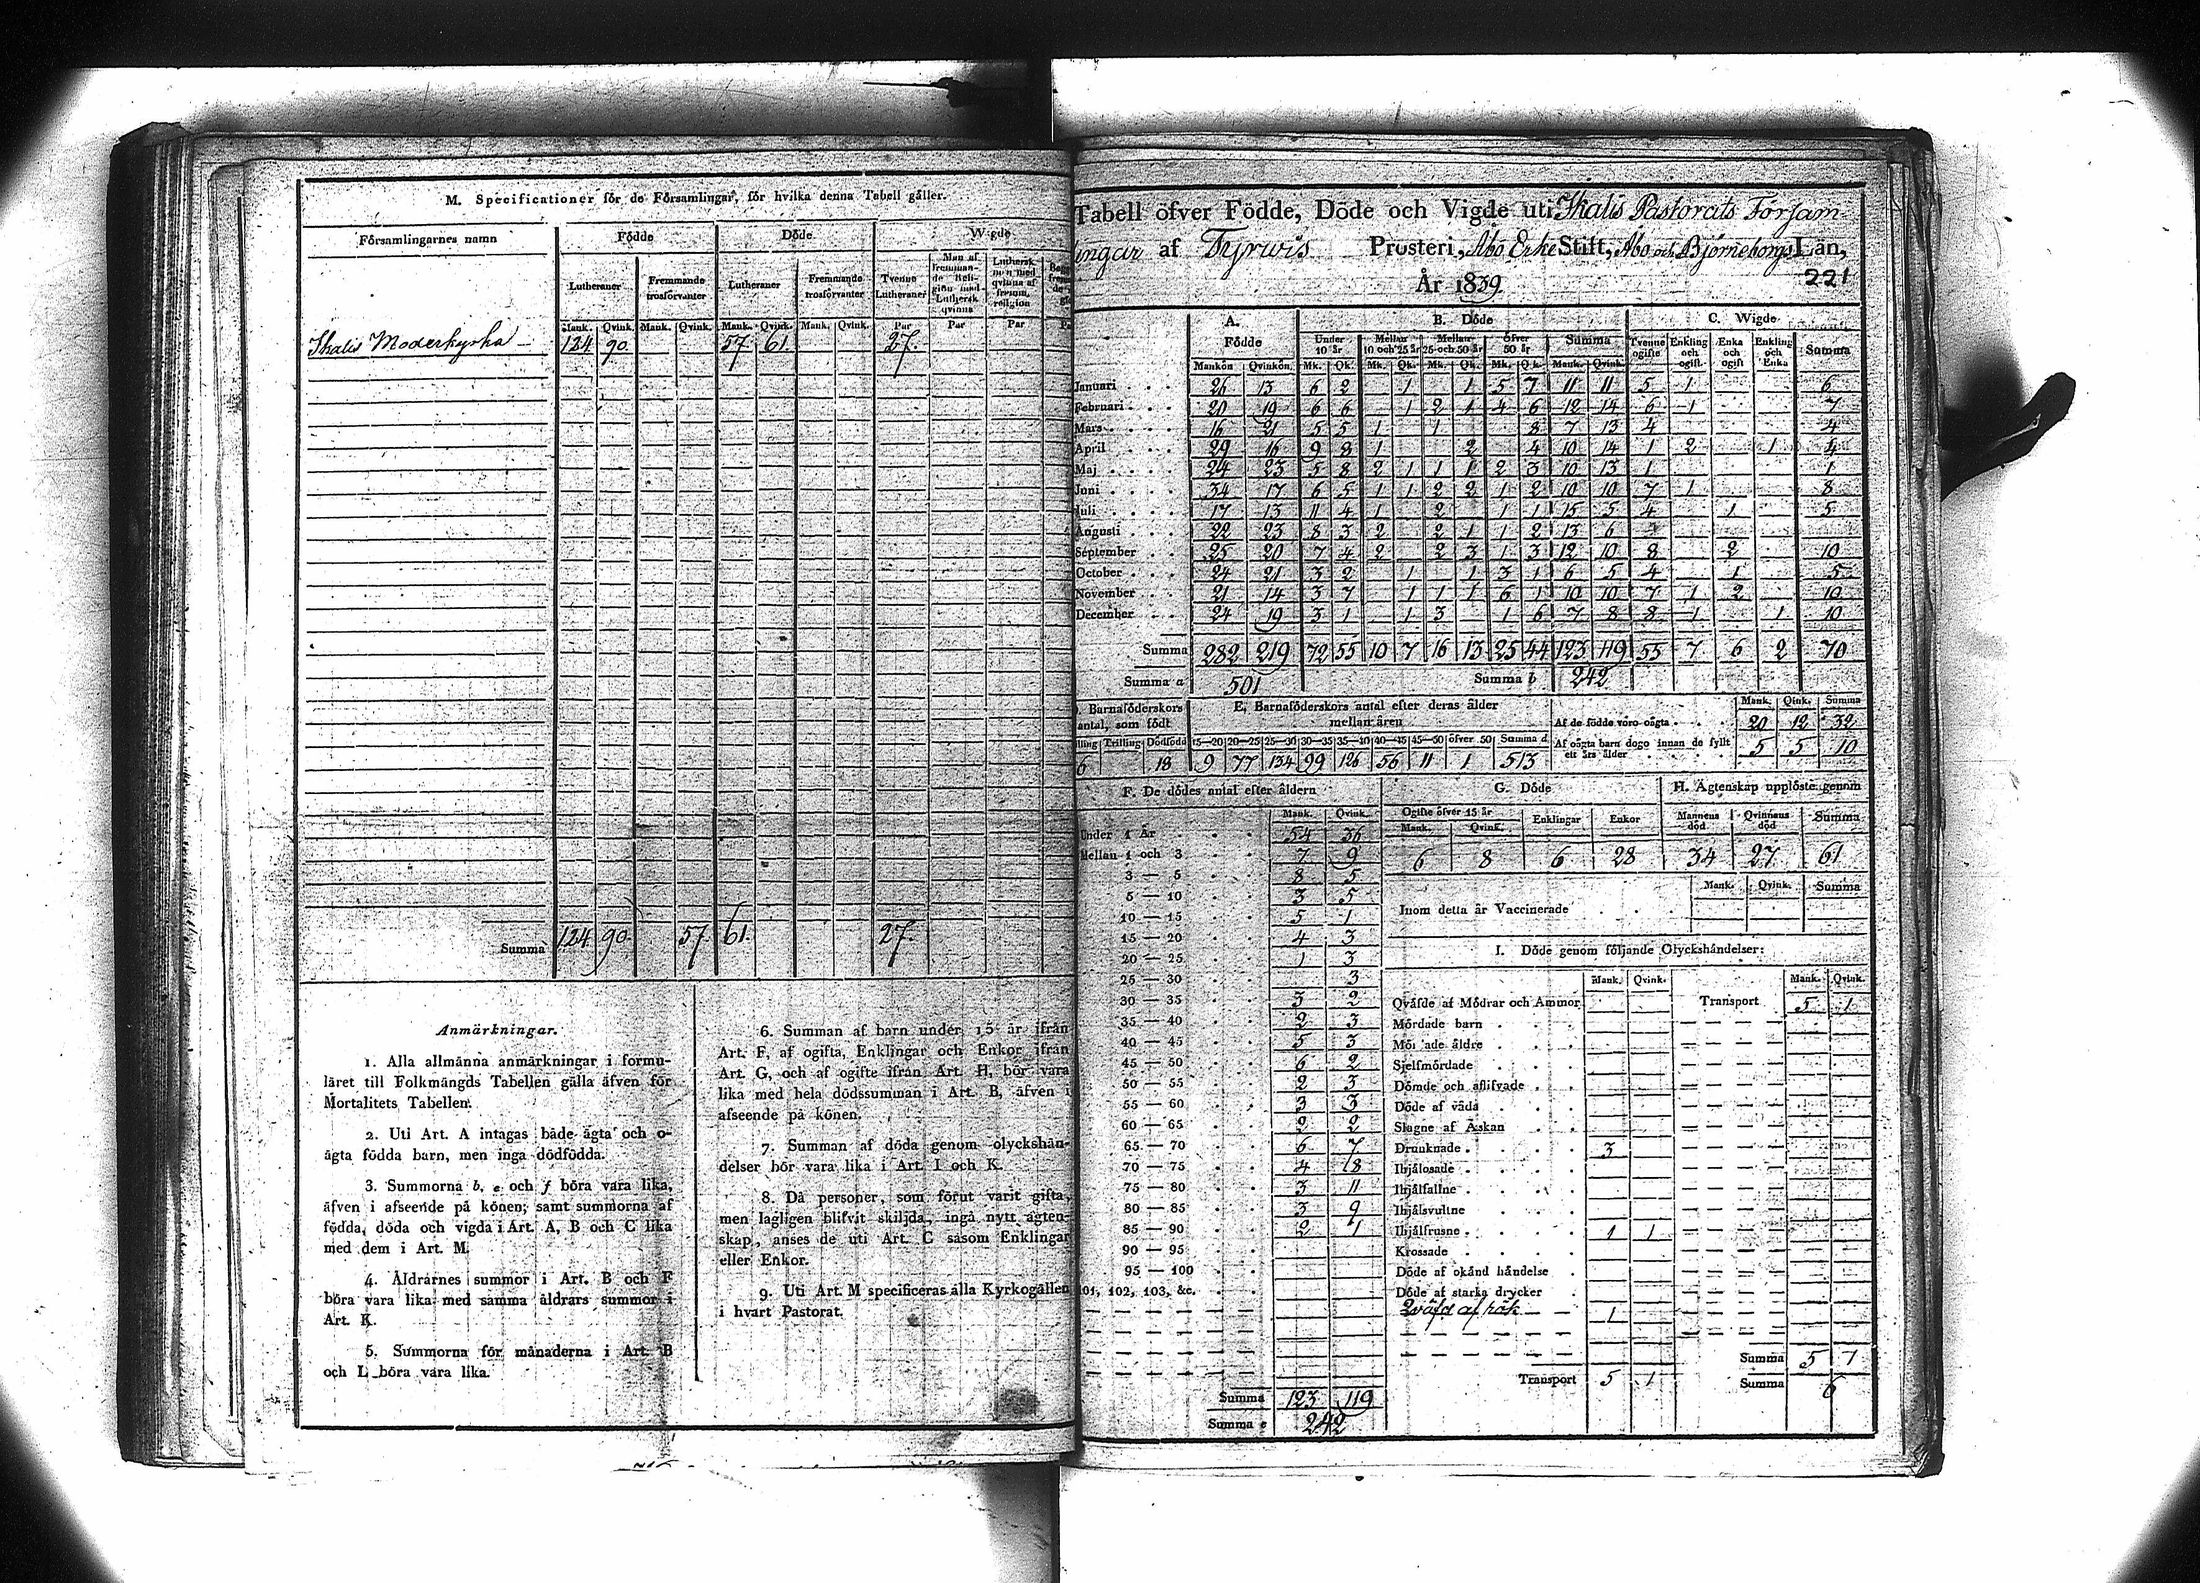 M. Specificationer för de Församlingar, för hvilka denna Tabell gäller.
Församlingarnes namn Födde Döde Wigde
Lutheraner Fremmande trosförvanter Lutheraner Fremmande trosförvanter Tvenne Lutheraner Man af fremmande Religion med Luthersk qvinna Luthersk man med qvinna af fremm. religion
Mank. Qvink. Mank. Qvink. Mank. Qvink. Mank. Qvink. Par Par Par
Ikalis Moderkyrka 124 90. 57. 61. 27.
Summa 124 90. 57. 61. 27.
Anmärkningar.
1. Alla allmänna anmärkningar i formu-
läret till Folkmängds Tabellen gälla äfven för
Mortalitets Tabellen.
2. Uti Art. A intagas både ägta och o-
ägta födda barn, men inga dödfödda.
3. Summorna b, e och f böra vara lika,
äfven i afseende på könen; samt summorna af
födda, döda och vigda i Art. A, B och C lika
med dem i Art. M.
4. Åldrarnes summor i Art. B och F
böra vara lika med samma åldrars summor i
Art. K.
5. Summorna för månaderna i Art. B
och L böra vara lika.
6. Summan af barn under 15 år ifrån
Art. F, af ogifta, Enklingar och Enkor ifrån
Art. G, och af ogifte ifrån Art. H, bör vara
lika med hela dödssumman i Art. B, äfven i
afseende på könen.
7. Summan af döda genom olyckshän-
delser bör vara lika i Art. I och K.
8. Då personer, som förut varit gifta,
men lagligen blifvit skiljda, ingå nytt ägten-
skap, anses de uti Art. C såsom Enklingar
eller Enkor.
9. Uti Art. M specificeras alla Kyrkogällen
i hvart Pastorat.
Tabell öfver Födde, Döde och Vigde uti Ikalis Pastorats Församlingar af Tyrwis Prosteri, Åbo Erke Stift, Åbo och Björneborgs Län,
År 1839
221
A. Födde B. Döde C. Wigde
Under 10 år Mellan 10 och 25 år Mellan 25 och 50 år Öfver 50 år Summa Tvenne ogifte Enkling och ogift Enka och ogift Enkling och Enka Summa
Mankön Qvinkön Mk. Qk. Mk. Qk. Mk. Qk. Mk. Qk. Mank. Qvink.
Januari 26 13 6 2 1 1 5 7 11 11 5 1 6
Februari 20 19 6 6 1 2 1 4 6 12 14 6 1 7
Mars 16 21 5 5 1 1 8 7 13 4 4
April 29 16 9 8 1 2 4 10 14 1 2 1 4
Maj 24 23 5 8 2 1 1 1 2 3 10 13 1 1
Juni 34 17 6 5 1 1 2 2 1 2 10 10 7 1 8
Juli 17 13 11 4 1 2 1 1 15 5 4 1 5
Augusti 22 23 8 3 2 2 1 1 2 13 6
September 25 20 7 4 2 2 3 1 3 12 10 8 2 10
October 24 21 3 2 1 1 3 1 6 5 4 1 5
November 21 14 3 7 1 1 1 6 1 10 10 7 1 2 10
December 24 19 3 1 1 3 1 6 7 8 8 1 1 10
Summa 282 219 72 55 10 7 16 13 25 44 123 119 55 7 6 2 70
Summa a 501 Summa b 242
D. Barnaföderskors antal, som födt
Trilling Dödfödd
6 18
E. Barnaföderskors antal efter deras ålder mellan åren
15—20 20—25 25—30 30—35 35—40 40—45 45—50 öfver 50 Summa d
9 77 134 99 126 56 11 1 513
Mank. Qink. Summa
Af de födde voro oägta 20 12 32
Af oägta barn dogo innan de fyllt ett års ålder 5 5 10
F. De dödes antal efter åldern
Mank. Qvink.
Under 1 År 54 36
Mellan 1 och 3 7 9
3 — 5 8 5
5 — 10 3 5
10 — 15 5 1
15 — 20 4 3
20 — 25 1 3
25 — 30 3
30 — 35 3 2
35 — 40 2 3
40 — 45 5 3
45 — 50 6 2
50 — 55 2 3
55 — 60 3 3
60 — 65 2 2
65 — 70 6 7
70 — 75 4 18
75 — 80 3 11
80 — 85 3 9
85 — 90 2 1
90 — 95
95 — 100
101, 102, 103, &c.
Summa 123 119
Summa e 242
G. Döde
Ogifte öfver 15 år Enklingar Enkor
Mank. Qvink.
6 8 6 28
H. Ägtenskap upplöste genom
Mannens död Qvinnans död Summa
34 27 61
Mank. Qvink. Summa
Inom detta år Vaccinerade
I. Döde genom följande Olyckshändelser:
Mank. Qvink. Mank. Qvink.
Qväfde af Mödrar och Ammor Transport 5 1
Mördade barn
Mördade äldre
Sjelfmördade
Dömde och aflifvade
Döde af våda
Slagne af Åskan
Drunknade 3
Ihjälosade
Ihjälfallne
Ihjälsvultne
Ihjälfrusne 1 1
Krossade
Döde af okänd händelse
Döde af starka drycker
Qväfd af rök 1
Summa 5 1
Transport 5 1 Summa 6